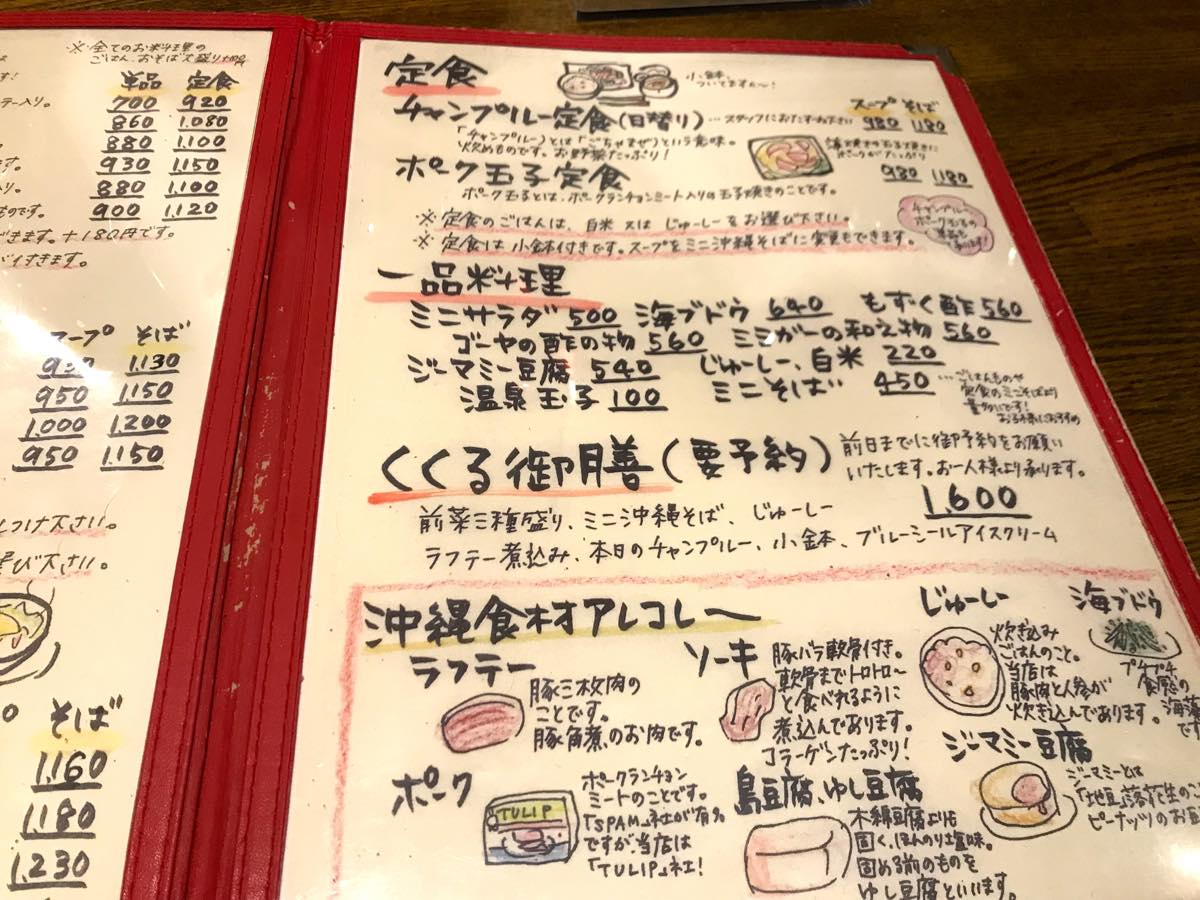 ※全てのお料理の
ごはん、おそば大盛り
単品 定食
700 920
860 1.080
880 1.100
930 1.150
880 1.100
900 1.120
ものです。
できます。+180円です。
付きます。
スープ そば
930 1.130
950 1.150
1.000 1.200
950 1.150
下さい。
下さい。
そば
1.160
1.180
1.230
定食
小鉢、
ついてますよ〜!
スープ そば
チャンプルー定食(日替り)…スタッフにおたずね下さい 980 1.180
「チャンプルー」とは「ごちゃまぜ」という意味。
炒めものです。お野菜たっぷり!
ポーク玉子定食
薄焼きの玉子焼きに
ポークがたっぷり
980 1.180
ポーク玉子とは、ポークランチョンミート入りの玉子焼きのことです。
※定食のごはんは、白米 又は じゅーしーをお選び下さい。
※定食は小鉢付きです。スープをミニ沖縄そばに変更もできます。
チャンプルー、
ポーク玉子の
単品も
あります!
一品料理
ミニサラダ 500 海ブドウ 640 もずく酢 560
ゴーヤの酢の物 560 ミミガーの和え物 560
ジーマミー豆腐 540 じゅーしー、白米 220
温泉玉子 100 ミニそば 450
…ごはんものや
定食のミニそばより
量多いです!
お子様におすすめ
くくる御膳(要予約)
前日までに御予約をお願い
いたします。お一人様より承ります。
1.600
前菜三種盛り、ミニ沖縄そば、じゅーしー
ラフテー煮込み、本日のチャンプルー、小鉢、ブルーシールアイスクリーム
沖縄食材アレコレ〜
ラフテー
豚三枚肉の
ことです。
豚角煮のお肉です。
ソーキ
豚バラ軟骨付き。
軟骨までトロトロ〜
と食べれるように
煮込んであります。
コラーゲンたっぷり!
じゅーしー
炊き込み
ごはんのこと。
当店は
豚肉と人参が
炊き込んであります。
海ブドウ
プチプチ
食感の
海藻
です
ポーク
TULIP
ポークランチョン
ミートのことです。
「SPAM」社が有名
ですが、当店は
「TULIP」社!
島豆腐、ゆし豆腐
木綿豆腐よりも
固く、ほんのり塩味。
固める前のものを
ゆし豆腐といいます。
ジーマミー豆腐
ジーマミーとは
「地豆」落花生のこ
ピーナッツのお豆